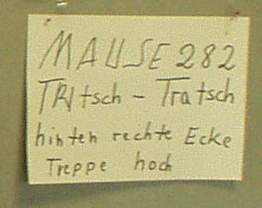 MAUSE 282
TRItsch - Tratsch
hinten rechte Ecke
Treppe hoch